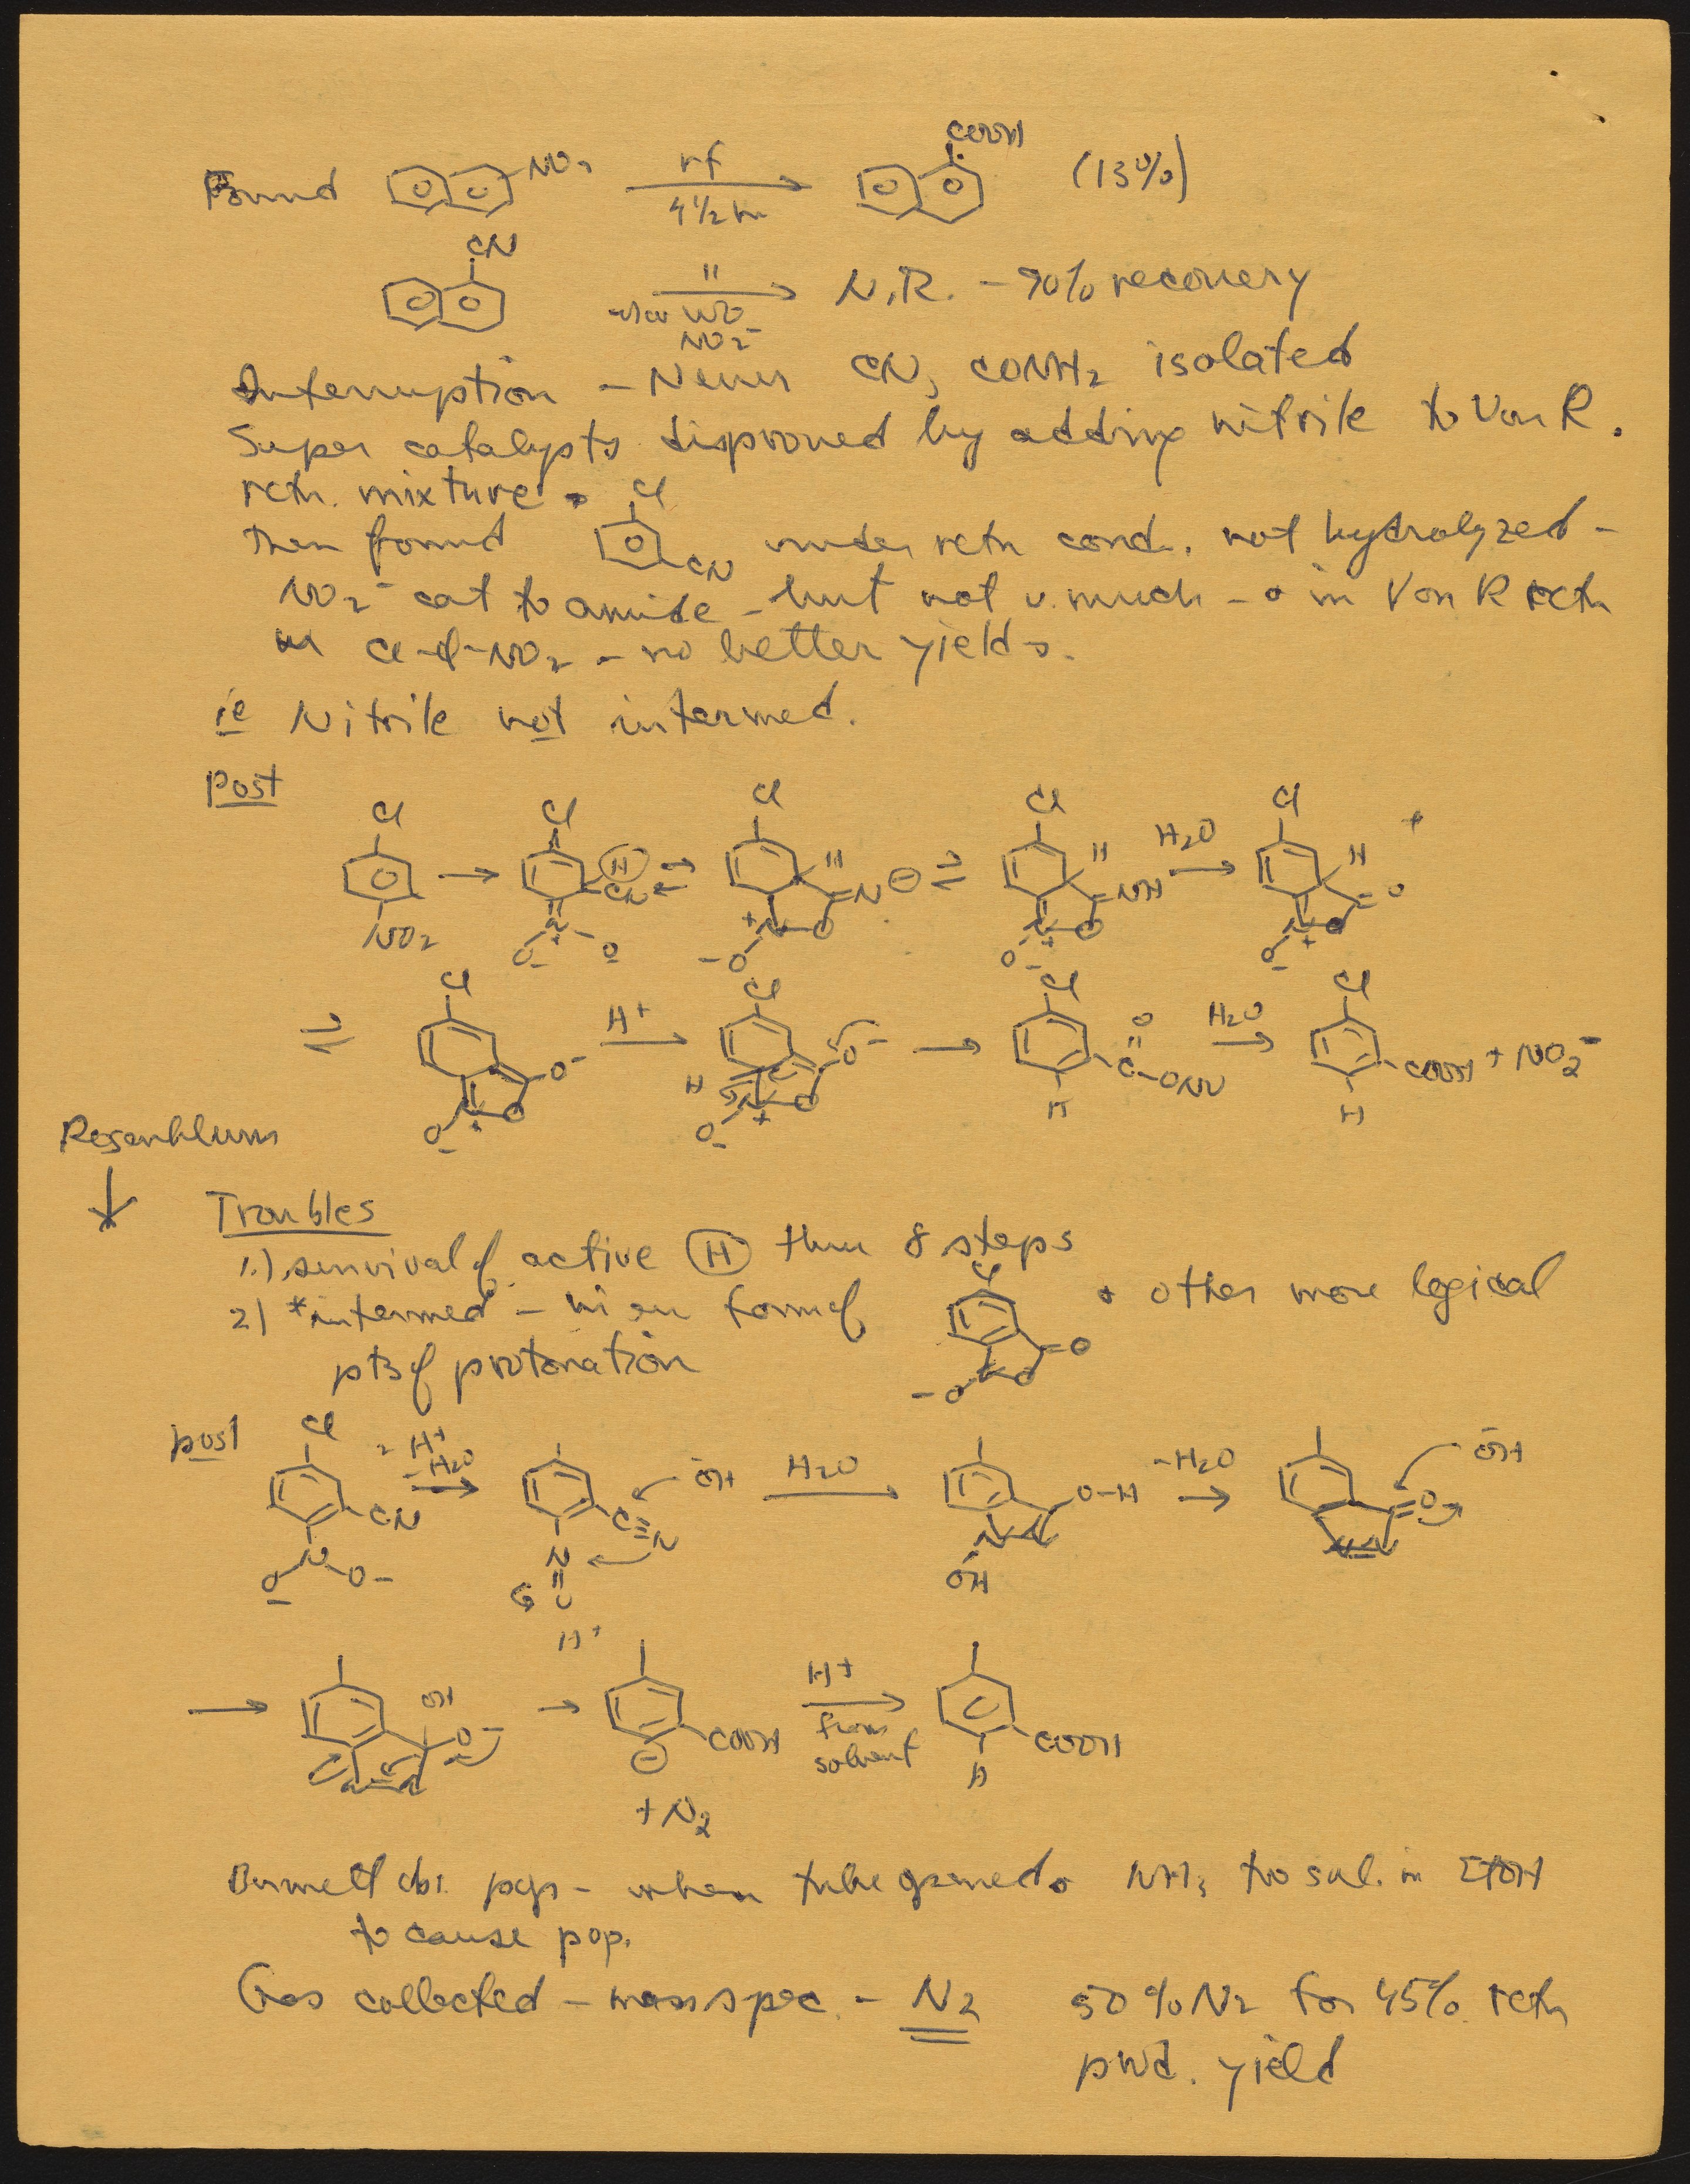 Found NO2 rf 4 1/2 hr COOH (13%)
CN " NO2- N.R. - 90% recovery
Interruption - Never CN, CONH2 isolated
Super catalysts disproved by adding nitrile to Von R.
rctn. mixture.
Then found Cl CN under rctn cond. not hydrolyzed -
NO2- cat to amide - but not v. much - in Von R rctn
Cl-φ-NO2 - no better yields.
ie Nitrile not intermed.
Post
Cl NO2 → Cl H CN N O- O- ⇄ Cl H N⊖ N+ O -O ⇌ Cl H NH N+ O O- H2O → Cl H O N+ O O-
⇌ Cl O- N+ O O- H+ → Cl O- H N+ O O- → Cl O C-ONO H H2O → Cl COOH + NO2- H
Rosenblum
↓
Troubles
1.) survival of active H thru 8 steps
2) *intermed - in form of Cl O N O -O other more logical
pts of protonation
post Cl CN N O- O- -H+ -H2O → C≡N N O OH- H2O → O-H N N OH -H2O → O N=N OH-
H+
→ OH O- N=N → COOH ⊖ H+ from solvent → COOH H
+ N2
Bunnett obs. pops - when tube opened. NH3 too sol. in EtOH
to cause pop.
Gas collected - mass spec. - N2 50% N2 for 45% rctn
prod. yield